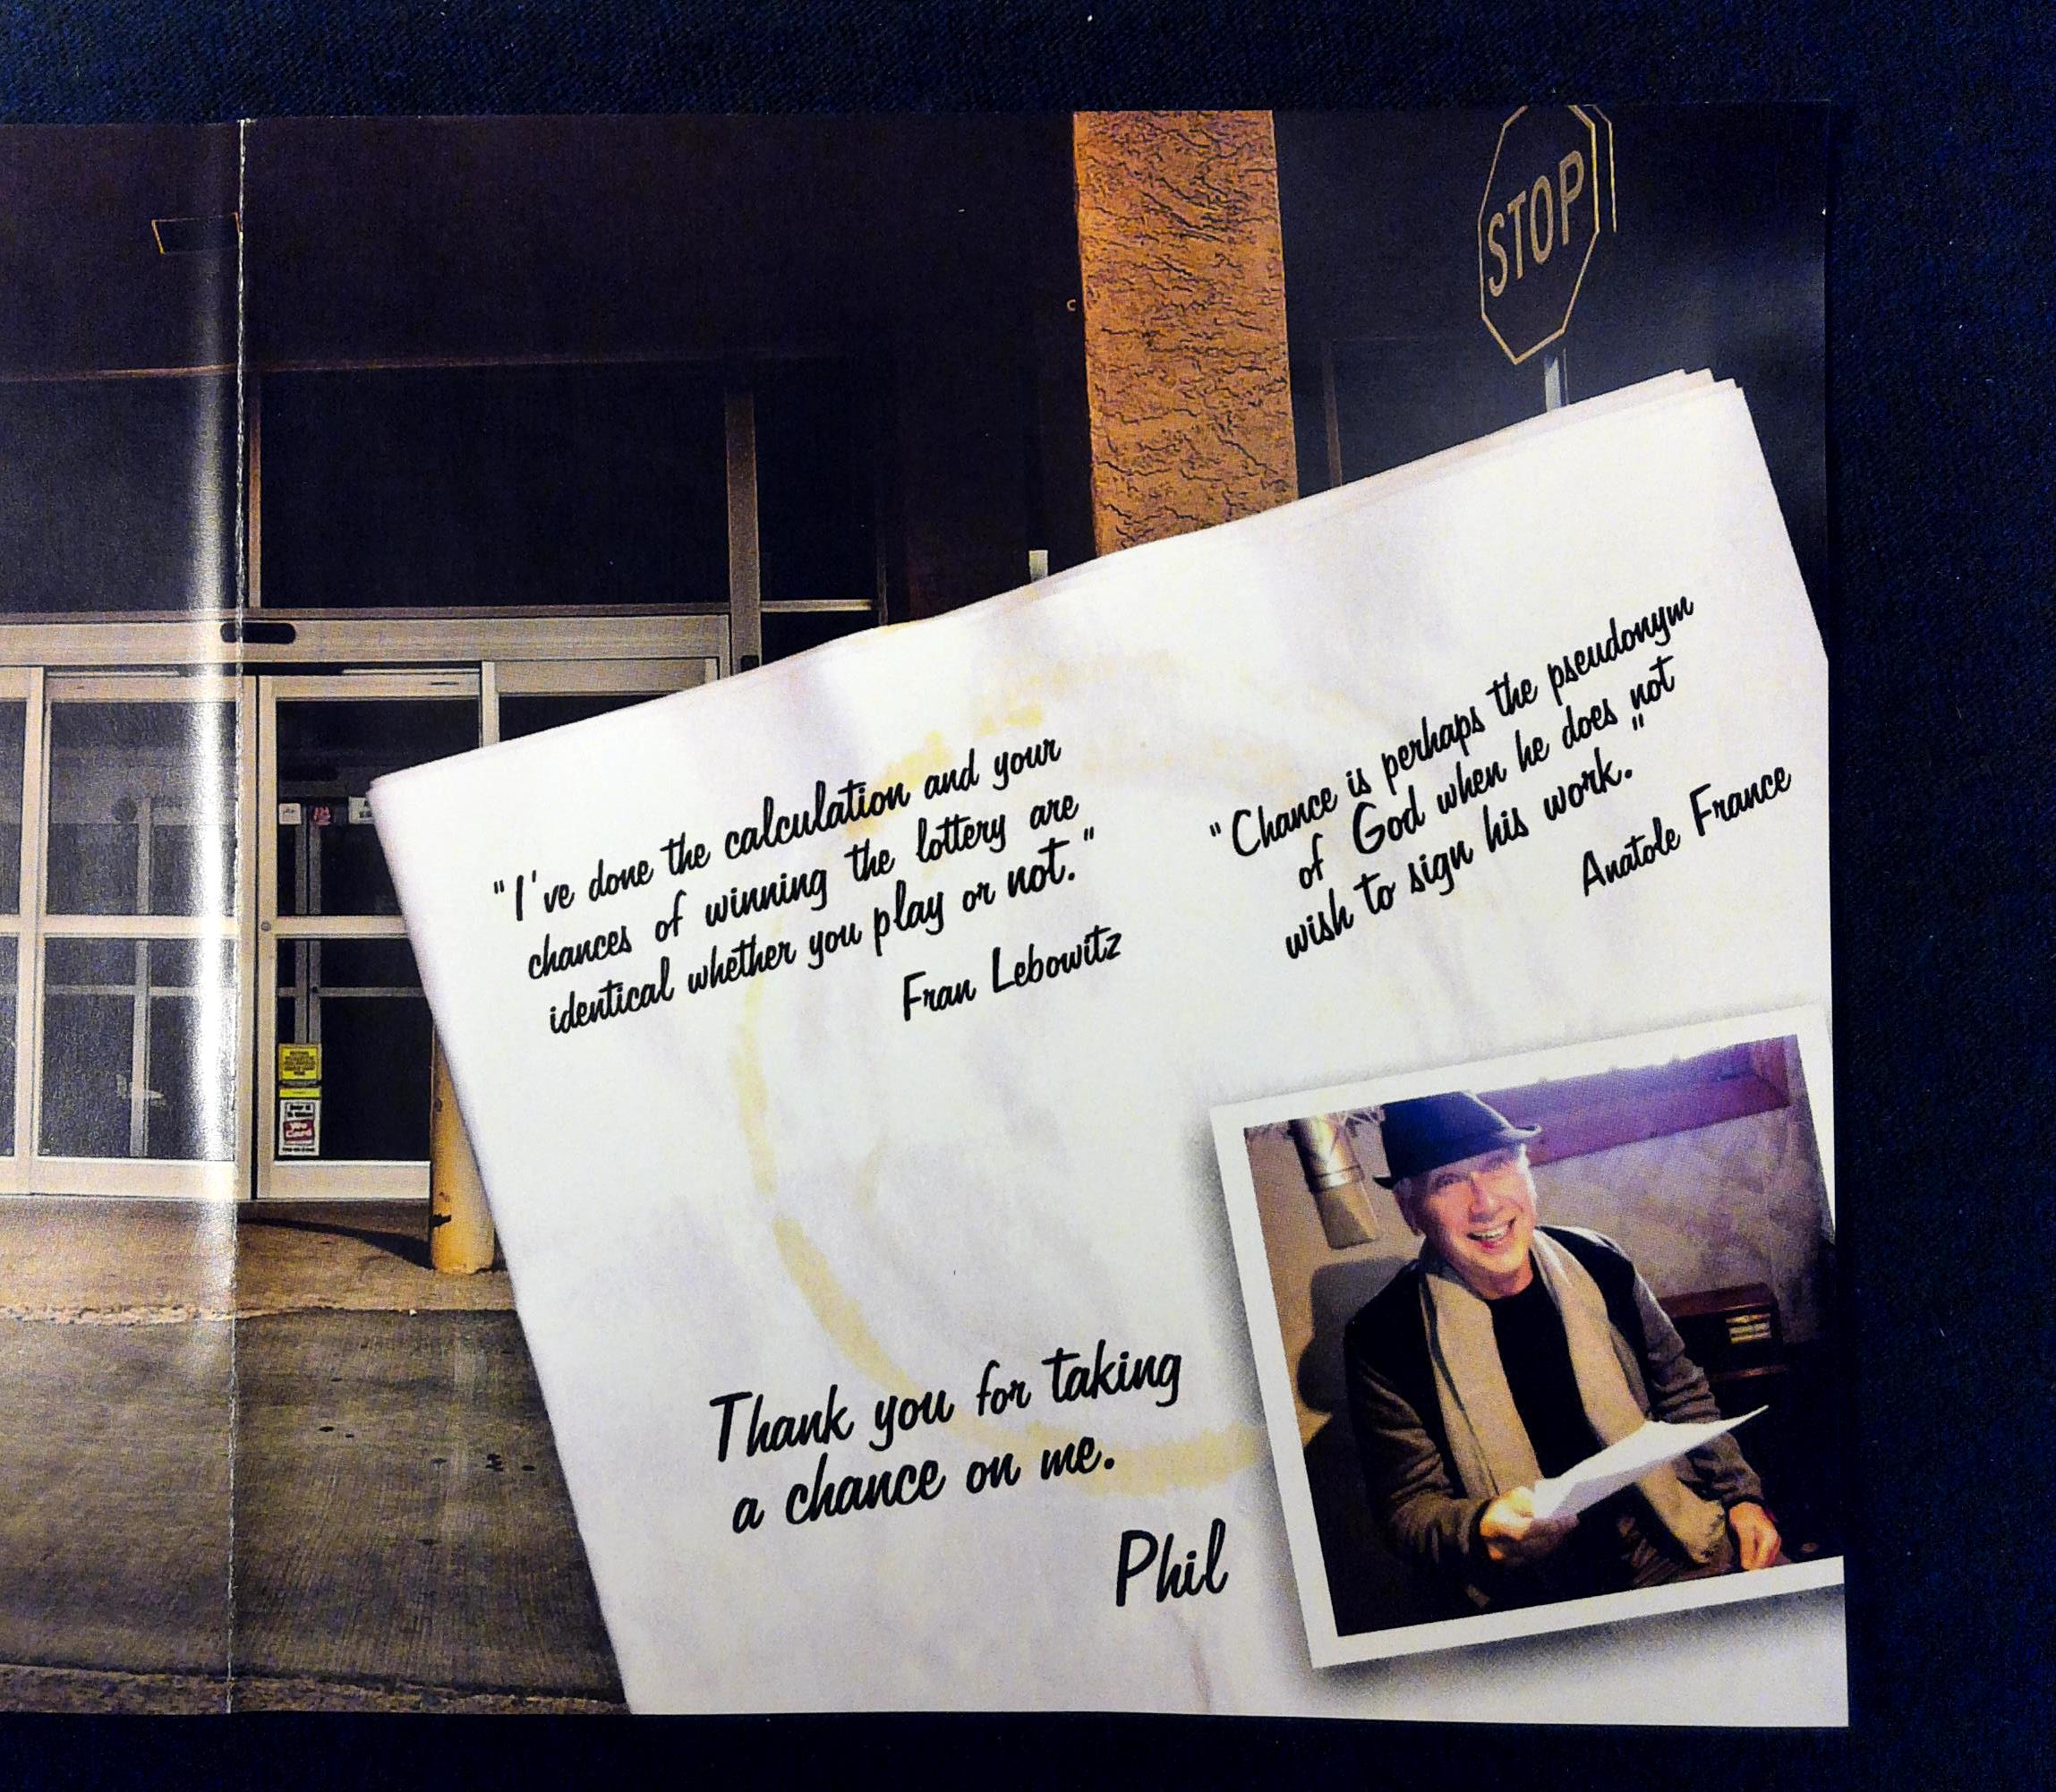 STOP
"I've done the calculation and your
chances of winning the lottery are
identical whether you play or not."
Fran Lebowitz
"Chance is perhaps the pseudonym
of God when he does not
wish to sign his work."
Anatole France
We
Card
Thank you for taking
a chance on me.
Phil